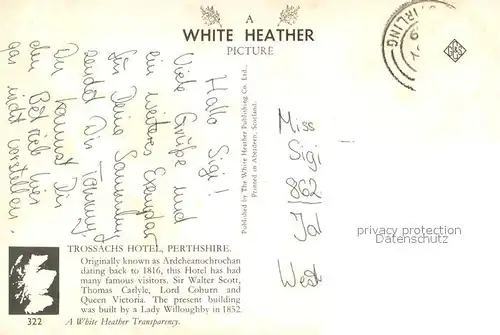 A
WHITE HEATHER
PICTURE
STIRLING
Hallo Sigi!
Viele Grüße und
ein weiteres Exemplar
für Deine Sammlung
sendet Dir Tommy.
Du kannst Dir
den Betrieb hier
gar nicht vorstellen.
Published by The White Heather Publishing Co. Ltd.,
Printed in Aberdeen, Scotland.
Miss
Sigi
862
West
privacy protection
Datenschutz.
TROSSACHS HOTEL, PERTHSHIRE.
Originally known as Ardcheanochrochan
dating back to 1816, this Hotel has had
many famous visitors. Sir Walter Scott,
Thomas Carlyle, Lord Coburn and
Queen Victoria. The present building
was built by a Lady Willoughby in 1852.
322
A White Heather Transparency.